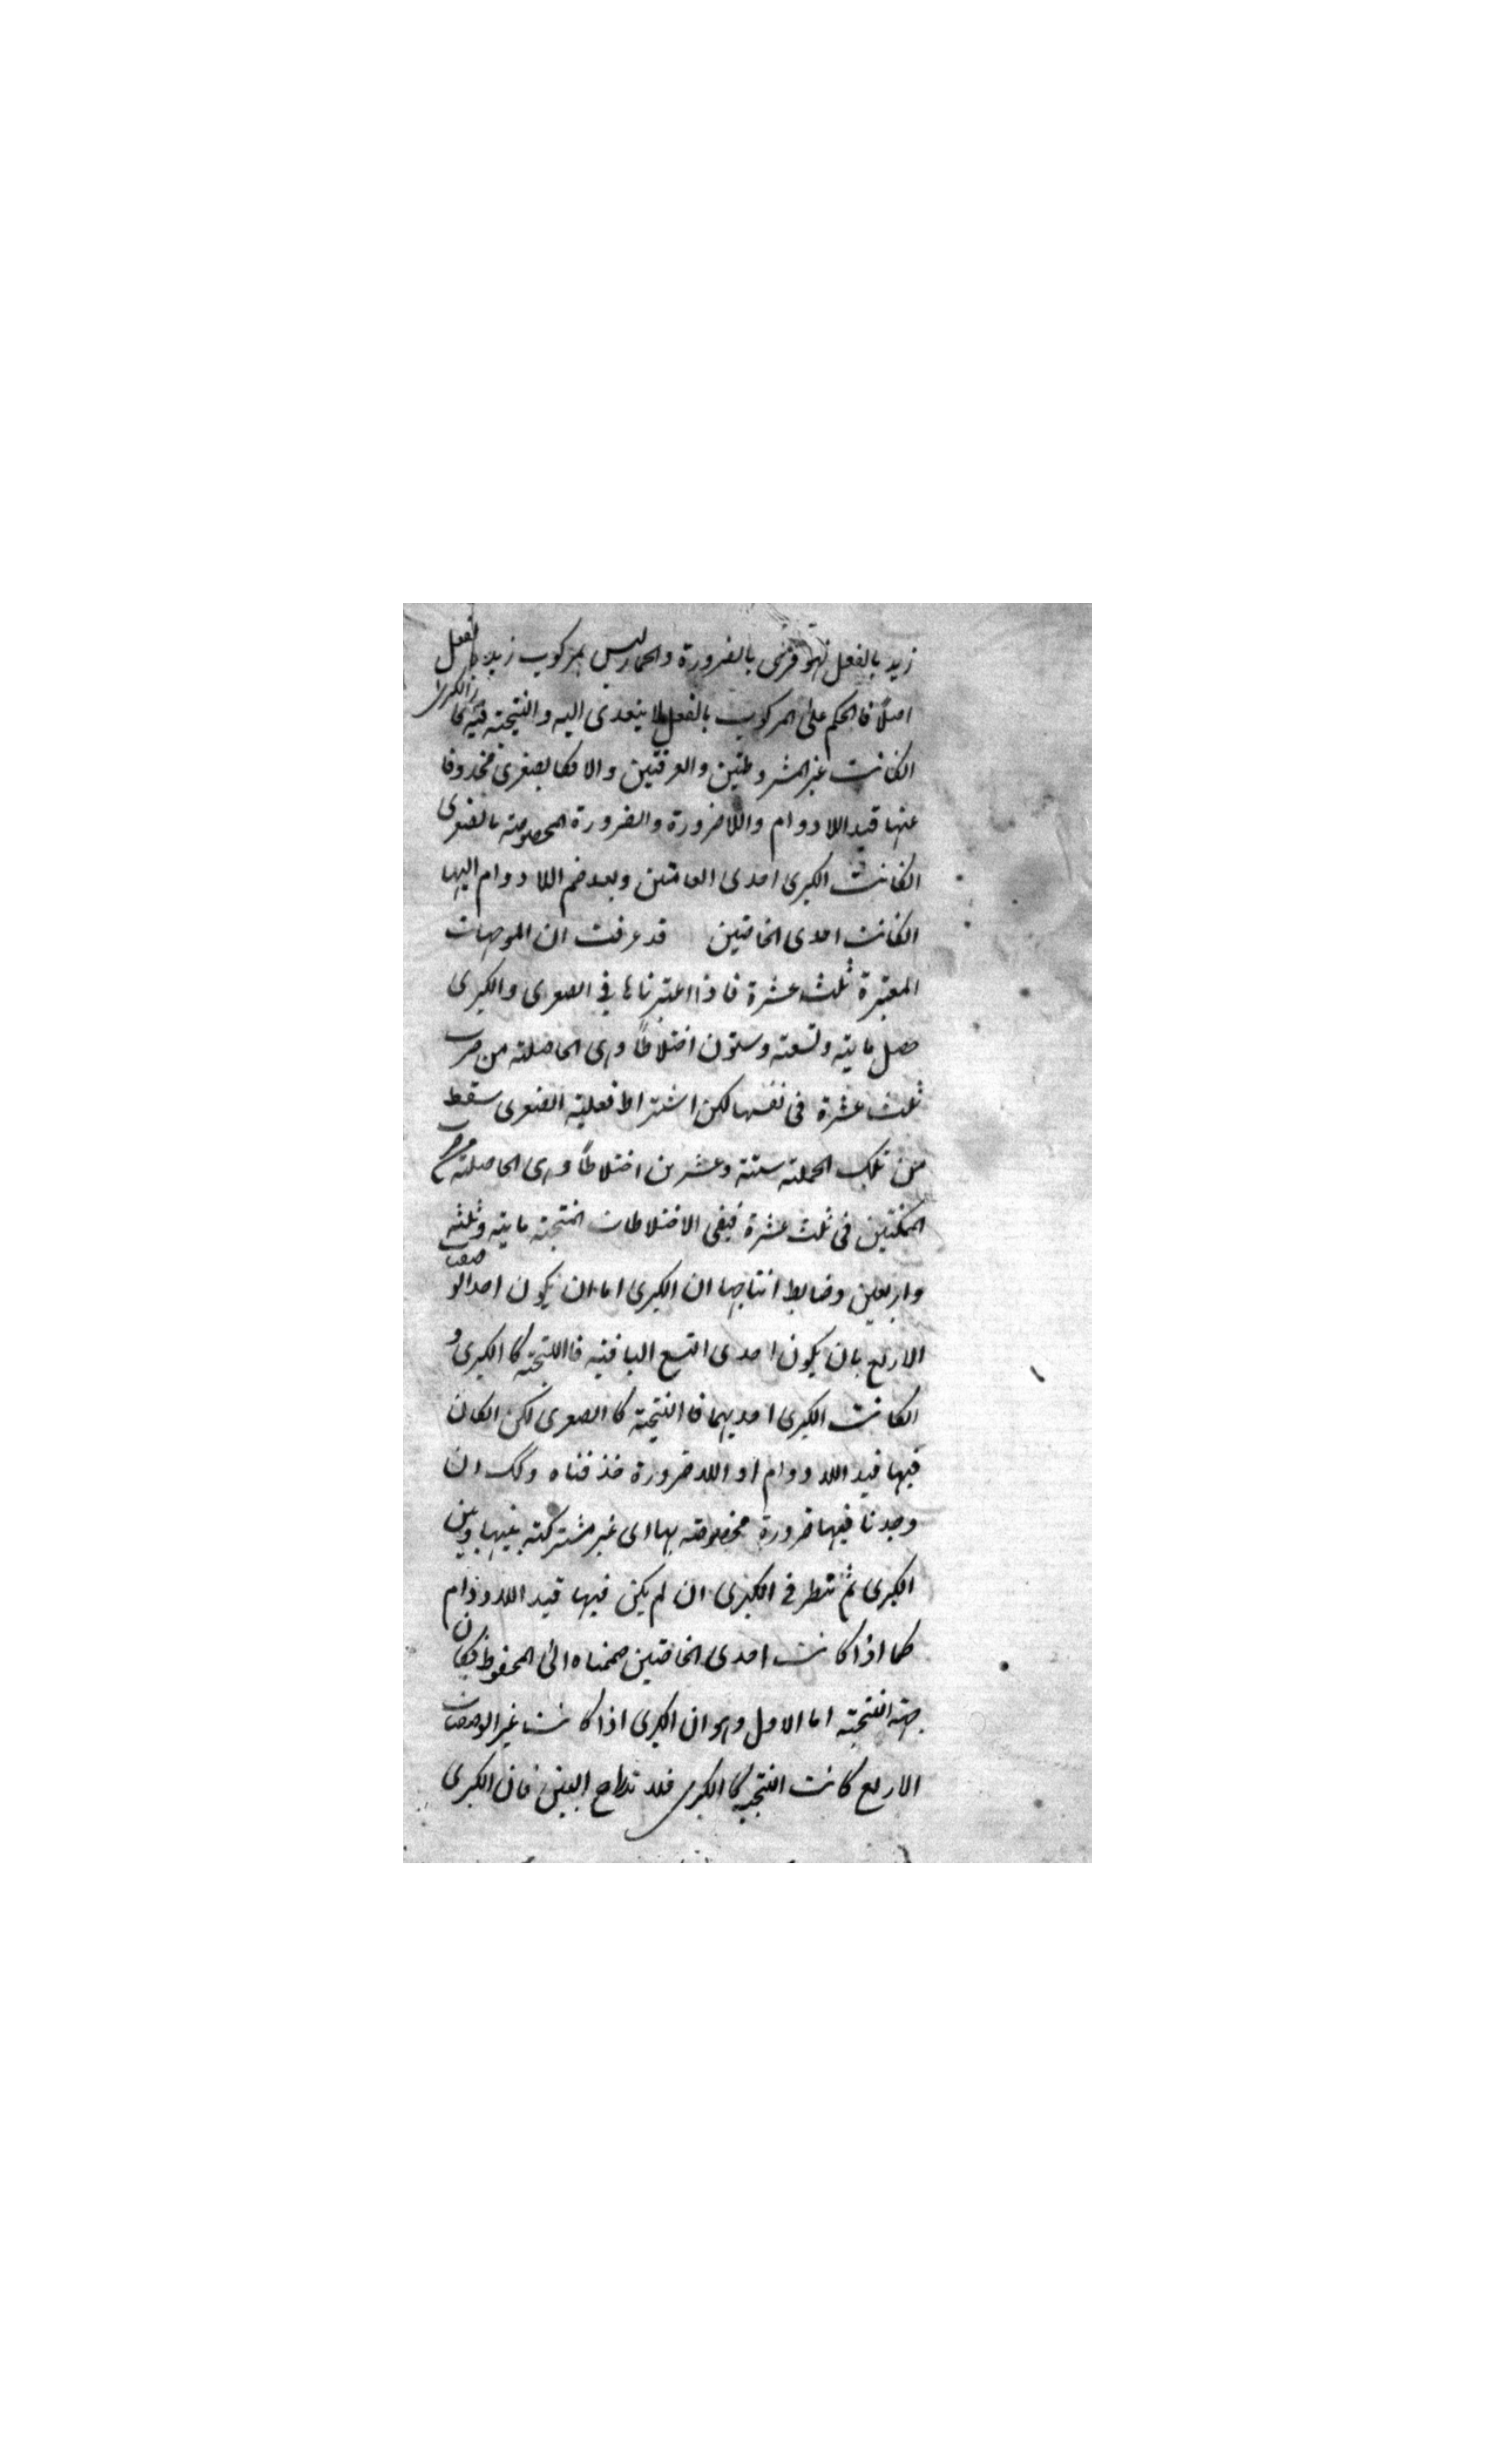 زيد بالفعل فهو فرس بالضرورة والحمار ليس بمركوب زيد بالفعل
اصلاً فالحكم على المركوب بالفعل لا يتعدى اليه والنتيجة فيه كالكبرى
انكانت غير المشروطتين والعرفيتين والا فكالصغرى محذوفا
عنها قيد اللادوام واللاضرورة والضرورة المخصوصة بالصغرى
انكانت الكبرى احدى العامتين وبعد ضم اللادوام اليها
انكانت احدى الخاصتين قد عرفت ان الموجهات
المعتبرة ثلث عشرة فاذا اعتبرناها في الصغرى والكبرى
حصل ماية وتسعة وستون اختلاطاً وهى الحاصلة من ضرب
ثلث عشرة فى نفسها لكن اشتراط فعلية الصغرى سقط
من تلك الجملة ستة وعشرين اختلاطاً وهى الحاصلة من ضرب
الممكنتين فى ثلث عشرة فبقى الاختلاطات المنتجة ماية وثلثة
واربعين وضابط انتاجها ان الكبرى اما ان يكون احد الوصفيات
الاربع بان يكون احدى التسع الباقية فالنتيجة كالكبرى و
انكانت الكبرى احديهما فالنتيجة كالصغرى لكن انكان
فيها قيد اللادوام او اللاضرورة حذفناه وكذلك ان
وجدنا فيها ضرورة مخصوصة بها اى غير مشتركة بينها وبين
الكبرى ثم ننظر فى الكبرى ان لم يكن فيها قيد اللادوام
كما اذا كانت احدى الخاصتين ضممناه الى المحفوظ فكان
جهة النتيجة اما الاول وهو ان الكبرى اذا كانت غير الوصفيات
الاربع كانت النتيجة كالكبرى فلاندراج البين فان الكبرى